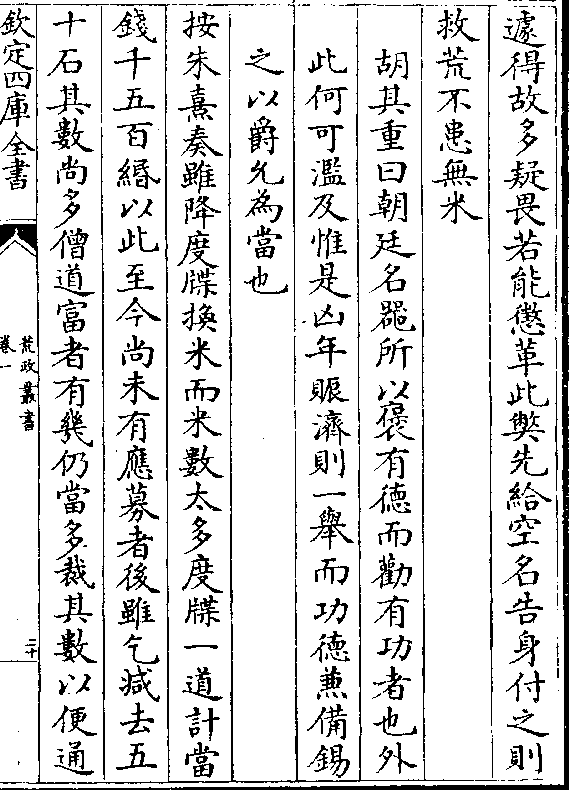 遽得故多疑畏若能懲革此弊先給空名告身付之則
救荒不患無米
胡其重曰朝廷名器所以褒有德而勸有功者也外
此何可濫及惟是凶年賑濟則一舉而功德兼備錫
之以爵允為當也
按朱熹奏雖降度牒換米而米數太多度牒一道計當
錢千五百緡以此至今尚未有應募者後雖乞減去五
十石其數尚多僧道富者有幾仍當多裁其數以便通
欽定四庫全書
荒政叢書
卷一
二十